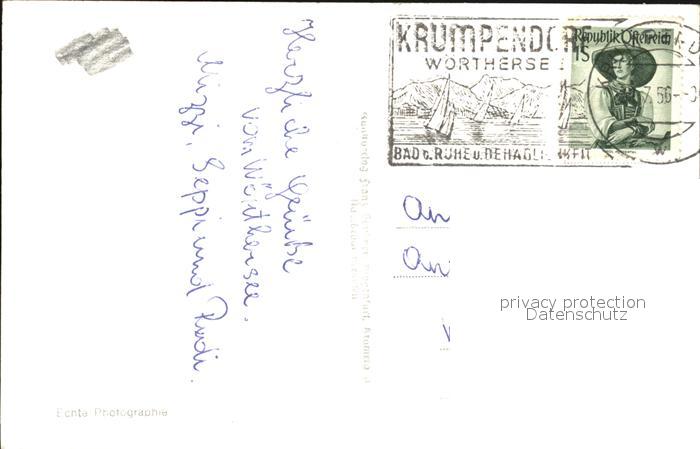 Herzliche Grüße
vom Wörthersee.
Mizzi, Seppi und Rudi.
Echte Photographie
KRUMPENDORF
WÖRTHERSEE
BAD d. RUHE u. BEHAGLICHKEIT
Republik Österreich
15
7.56
An
An
privacy protection
Datenschutz